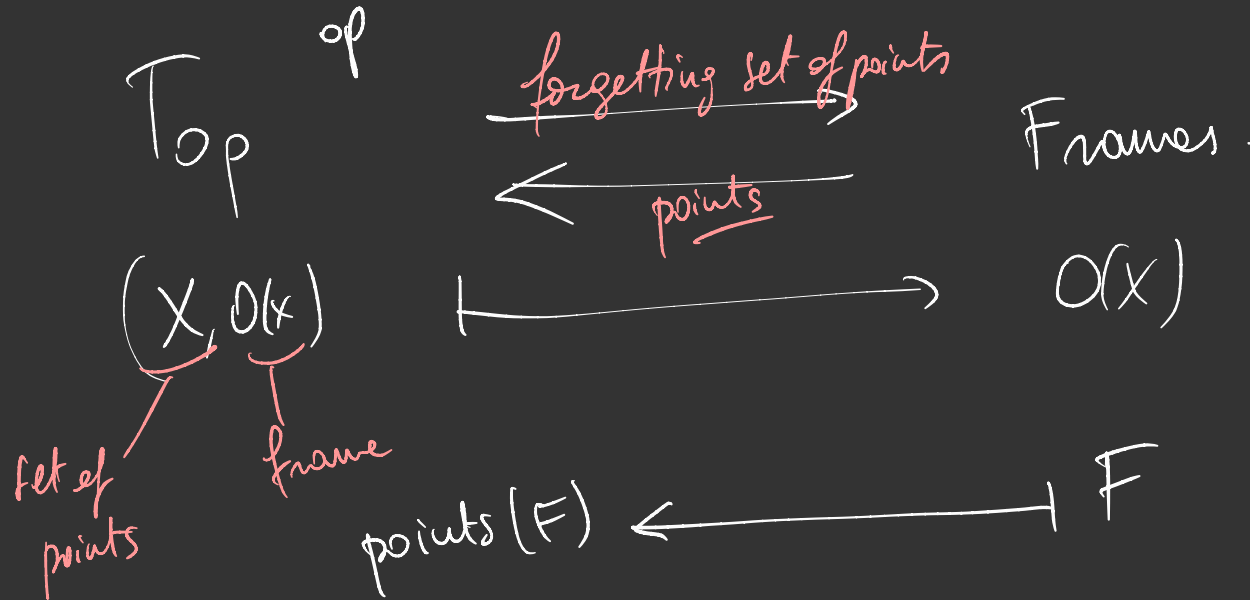 Top op
forgetting set of points
Frames.
points
(X, O(x)) ↦ O(X)
set of points
frame
points(F) ↤ F